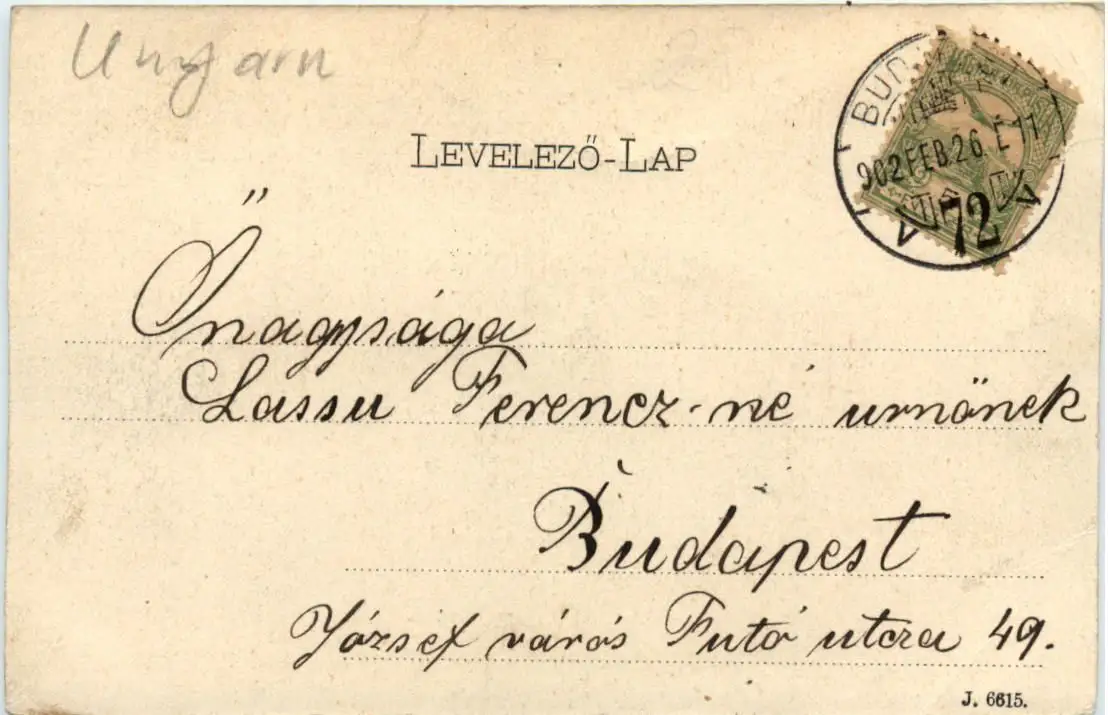 Ungarn
LEVELEZŐ-LAP
902 FEB. 26. É 11
72
Őnagysága
Lassu Ferencz-né urnőnek
Budapest
József város Futó utcza 49.
J. 6615.